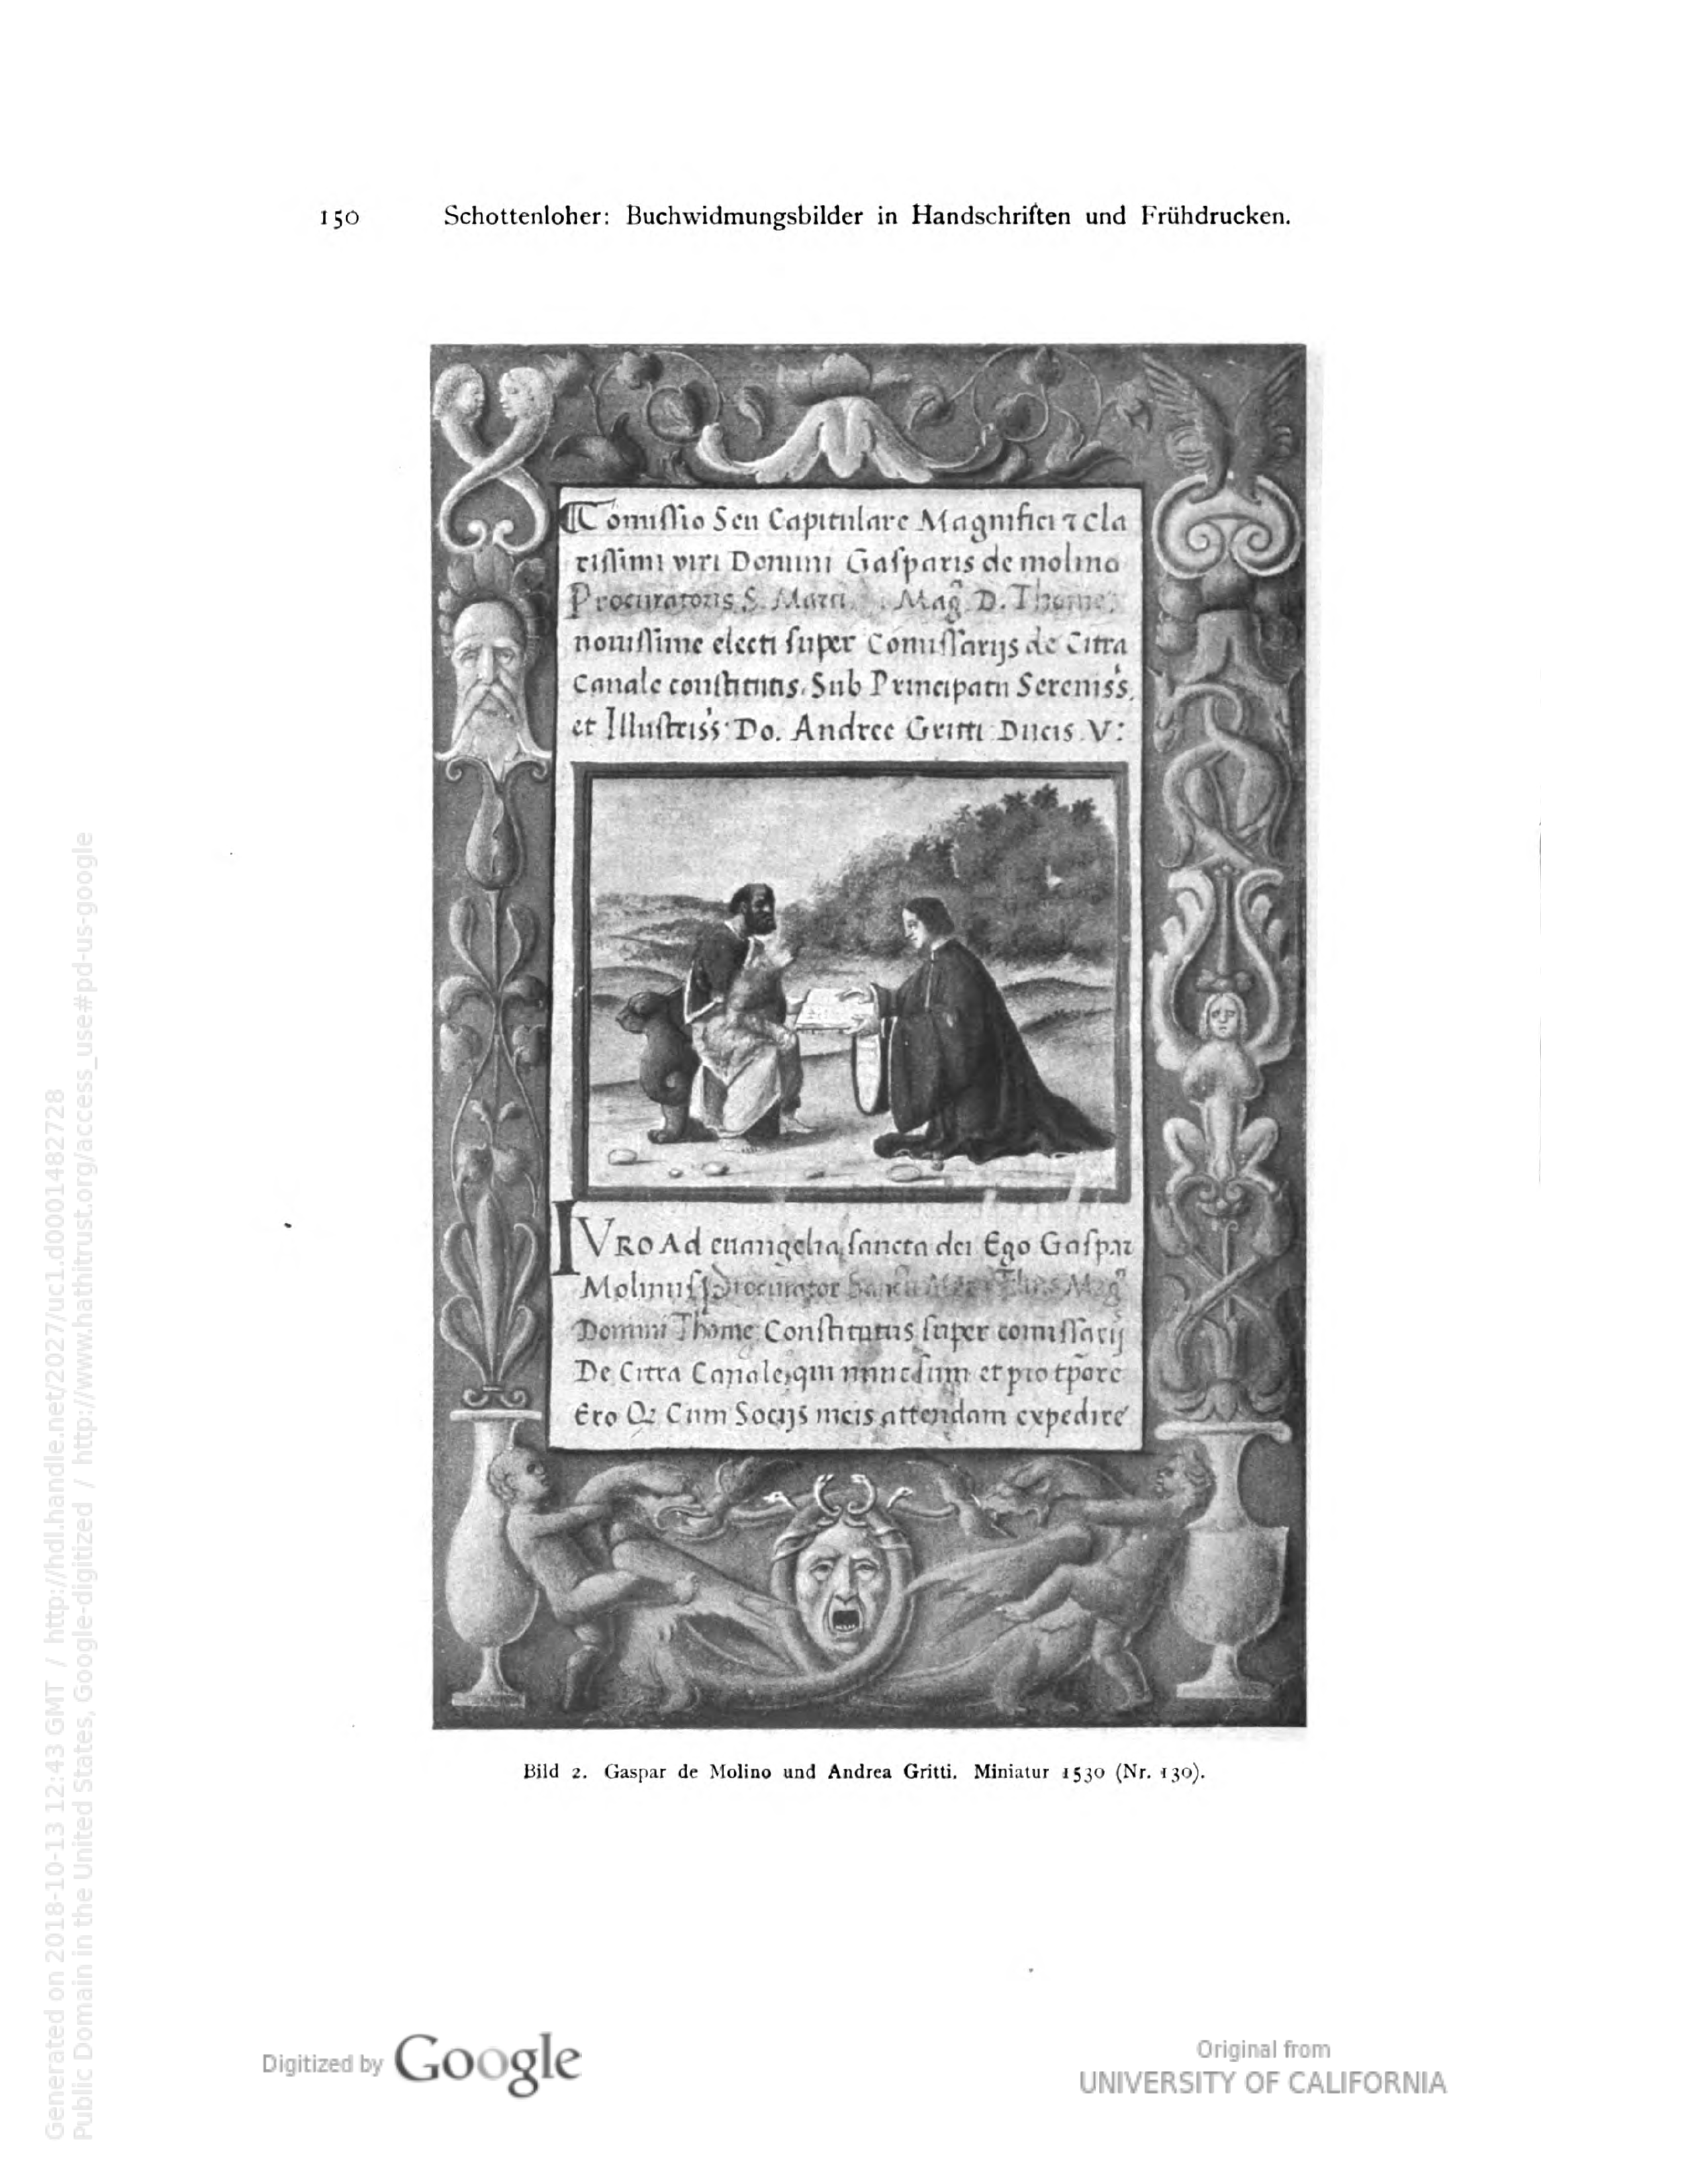 150 Schottenloher: Buchwidmungsbilder in Handschriften und Frühdrucken.
Comissio Seu Capitulare Magnifici ⁊ cla
rissimi viri Domini Gasparis de molino
Procuratoris S. Marci Mag. D. Thome
nouissime electi super Comissarijs de Citra
Canale constitutis. Sub Principatu Sereniss.
et Illustriss: Do. Andree Gritti Ducis V:
IVRO Ad euangelia sancta dei Ego Gaspar
Molinus Procurator
Domini Thome Constitutus super comissarij
De Citra Canale, qui nunc sum et pro tpore
Ero Q; Cum Socijs meis attendam expedire
Bild 2. Gaspar de Molino und Andrea Gritti. Miniatur 1530 (Nr. 130).
Generated on 2018-10-13 12:43 GMT / http://hdl.handle.net/2027/uc1.d0001482728
Public Domain in the United States, Google-digitized / http://www.hathitrust.org/access_use#pd-us-google
Digitized by Google
Original from
UNIVERSITY OF CALIFORNIA